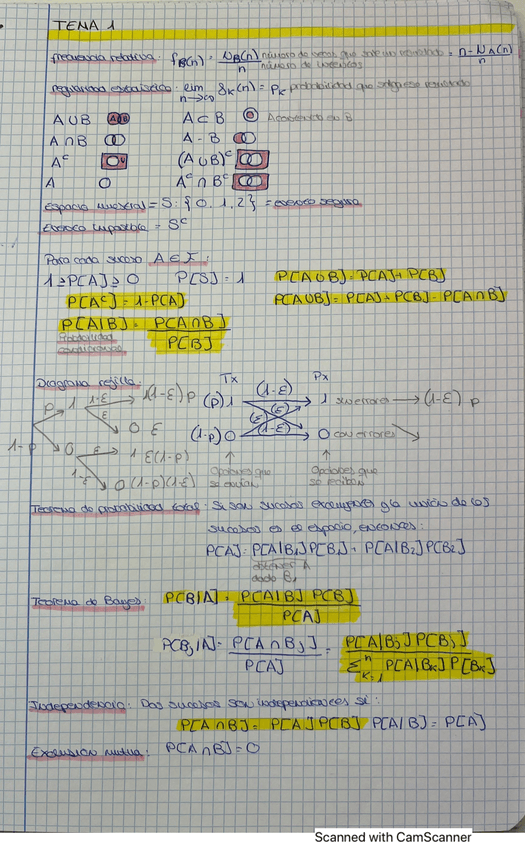 TEMA 1
frecuencia relativa: f_B(n) = N_B(n)/n número de veces que sale un resultado / número de intentos = n - N_A(n)/n
regularidad estadística: lim n→∞ f_K(n) = P_K probabilidad que salga ese resultado
A ∪ B A ⊂ B A contenido en B
A ∩ B A - B
A^c (A ∪ B)^c
A A^c ∩ B^c
Espacio muestral = S: {0, 1, 2} = evento seguro
Evento imposible = S^c
Para cada suceso A ∈ F:
1 ≥ P[A] ≥ 0 P[S] = 1 P[A ∪ B] = P[A] + P[B]
P[A^c] = 1 - P[A] P[A ∪ B] = P[A] + P[B] - P[A ∩ B]
P[A|B] = P[A ∩ B] / P[B]
Probabilidad condicionada
Diagrama rejilla: Tx (1-ε) Rx
p 1 1-ε 1 (1-ε) p (p) 1 1 sin errores → (1-ε) p
ε 0 ε (ε) (ε)
1-p 0 ε 1 ε(1-p) (1-p) 0 (1-ε) 0 con errores
1-ε 0 (1-p)(1-ε) Opciones que se envían Opciones que se reciben
Teorema de probabilidad total: Si son sucesos excluyentes y la unión de los
sucesos es el espacio, entonces:
P[A] = P[A|B₁] P[B₁] + P[A|B₂] P[B₂]
obtener A
dado B₁
Teorema de Bayes: P[B|A] = P[A|B] P[B] / P[A]
P[B_j|A] = P[A ∩ B_j] / P[A] = P[A|B_j] P[B_j] / Σ^n_{k=1} P[A|B_k] P[B_k]
Independencia: Dos sucesos son independientes si:
P[A ∩ B] = P[A] P[B] P[A|B] = P[A]
Exclusión mutua: P[A ∩ B] = 0
Scanned with CamScanner